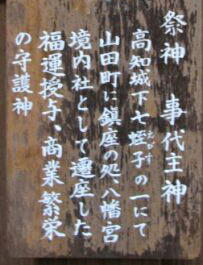 祭神 事代主神
高知城下七蛭子の一にて
山田町に鎮座の処八幡宮
境内社として遷座した
福運授与、商業繁栄
の守護神